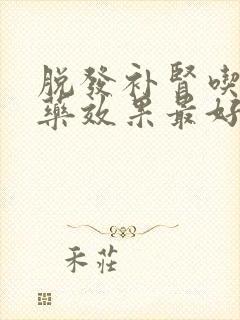 脱發补腎喫
藥效果最好
禾莊